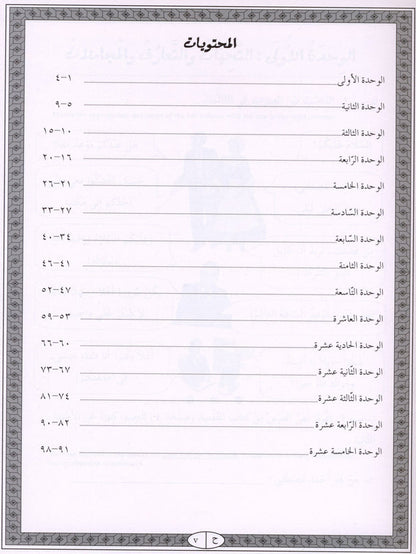 المحتويات
الوحدة الأولى ١-٤
الوحدة الثانية ٥-٩
الوحدة الثالثة ١٠-١٥
الوحدة الرّابعة ١٦-٢٠
الوحدة الخامسة ٢١-٢٦
الوحدة السّادسة ٢٧-٣٣
الوحدة السّابعة ٣٤-٤٠
الوحدة الثامنة ٤١-٤٦
الوحدة التّاسعة ٤٧-٥٢
الوحدة العاشرة ٥٣-٥٩
الوحدة الحادية عشرة ٦٠-٦٦
الوحدة الثّانية عشرة ٦٧-٧٣
الوحدة الثّالثة عشرة ٧٤-٨١
الوحدة الرّابعة عشرة ٨٢-٩٠
الوحدة الخامسة عشرة ٩١-٩٨
ح ٧